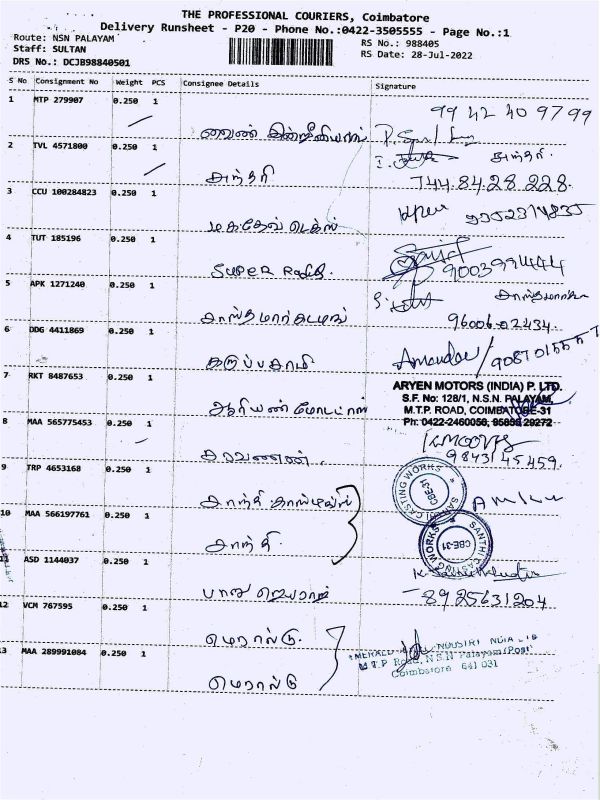 THE PROFESSIONAL COURIERS, Coimbatore
Delivery Runsheet - P20 - Phone No.:0422-3505555 - Page No.:1
Route: NSN PALAYAM
RS No.: 988405
Staff: SULTAN
RS Date: 28-Jul-2022
DRS No.: DCJB98840501
S No Consignment No Weight PCS Consignee Details Signature
1 MTP 279907 0.250 1
99 42 40 9799
2 TVL 4571800 0.250 1
அந்தரி
744.84.28.228.
3 CCU 100284823 0.250 1
4 TUT 185196 0.250 1
SUPER
9003994444
5 APK 1271240 0.250 1
96006.02434
6 DDG 4411869 0.250 1
கருப்பசாமி
7 RKT 8487653 0.250 1
ஆரியன் மோட்டார்ஸ்
ARYEN MOTORS (INDIA) P. LTD.
S.F. No: 128/1, N.S.N. PALAYAM,
M.T.P. ROAD, COIMBATORE-31
Ph: 0422-2460056, 95859 29272
8 MAA 565775453 0.250 1
சரவணன்.
98431 45459.
9 TRP 4653168 0.250 1
சாந்தி காஸ்டிங்ஸ்
SANTHI CASTING WORKS
CBE-31
10 MAA 566197761 0.250 1
சாந்தி.
SANTHI CASTING WORKS
CBE-31
ASD 1144037 0.250 1
பால ஜெயராம்
8925631204
12 VCM 767595 0.250 1
மெரால்டு.
13 MAA 289991084 0.250 1
மெரால்டு
M.T.P Road, N.S.N Palayam (Post)
Coimbatore 641 031